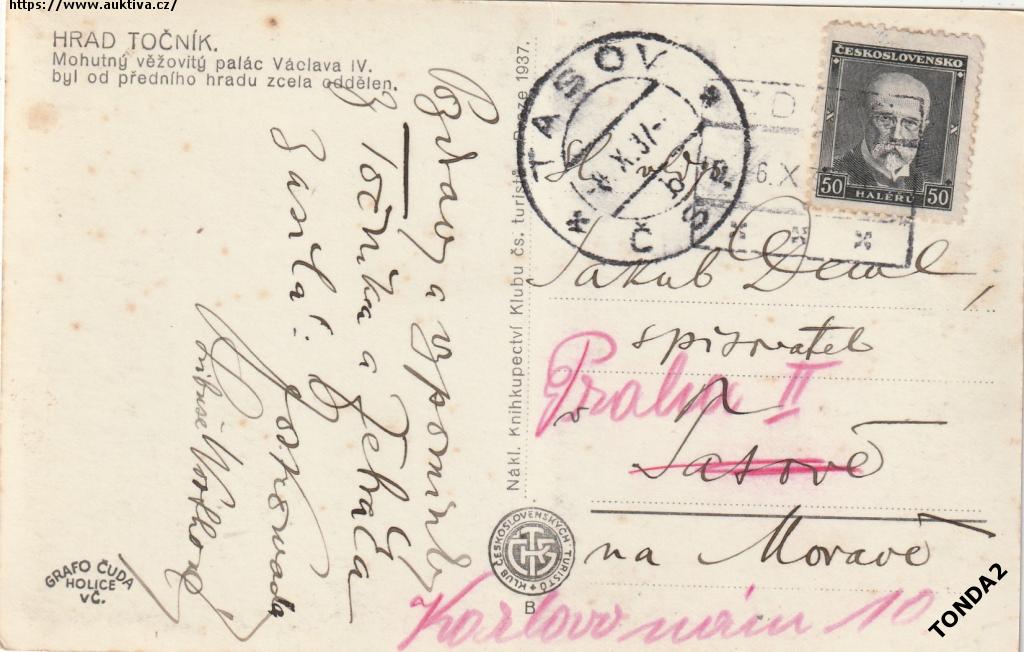 https://www.auktiva.cz/
HRAD TOČNÍK.
Mohutný věžovitý palác Václava IV.
byl od předního hradu zcela oddělen.
Pozdrav a vzpomínky
z Točníka a Žebráka
GRAFO ČUDA
HOLICE
VČ.
Nákl. Knihkupectví Klubu čs. turistů 1937.
KLUB ČESKOSLOVENSKÝCH TURISTŮ
B
TASOV
ČS
X.37
6.X
ČESKOSLOVENSKO
50 HALÉŘŮ 50
Jakub Deml,
spisovatel
Praha II
v
Tasově
na Moravě
Karlovo nám 10
TONDA2